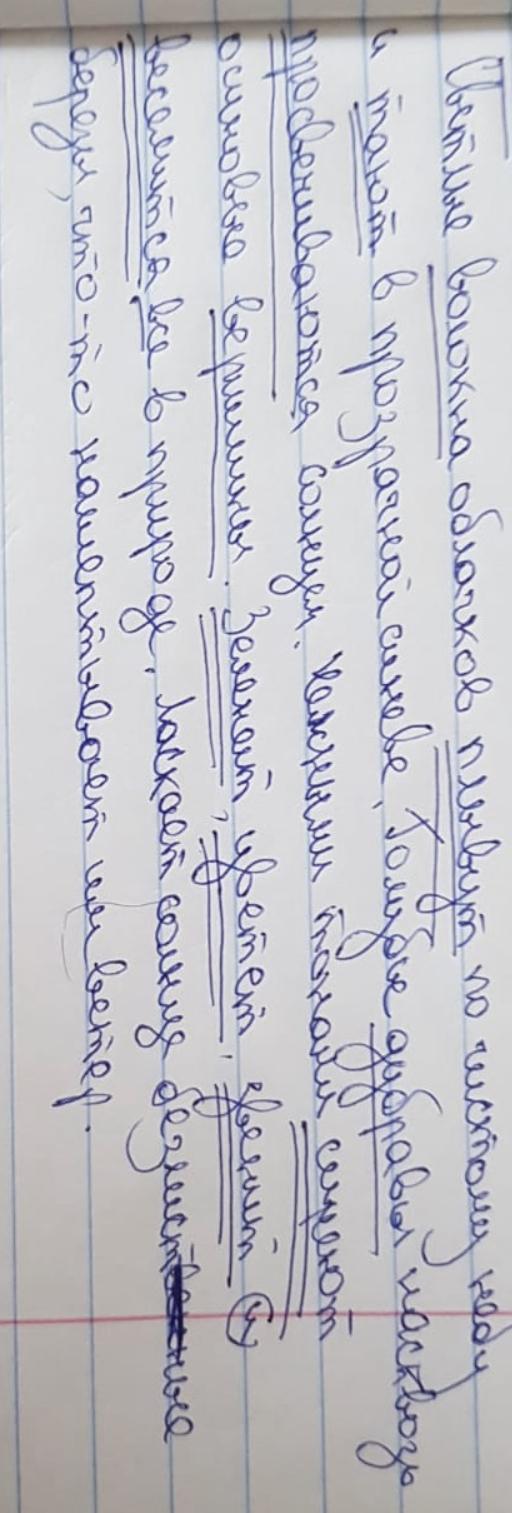 Светлые волокна облачков плывут по чистому небу
и тают в прозрачной синеве. Голубые дубравы насквозь
просвечиваются солнцем. Нежными тонами синеют
осиновые вершины. Зеленеет, цветет, звенит и
веселится все в природе. Ласкает солнце безлиственные
березы, что-то нашептывает им ветер.